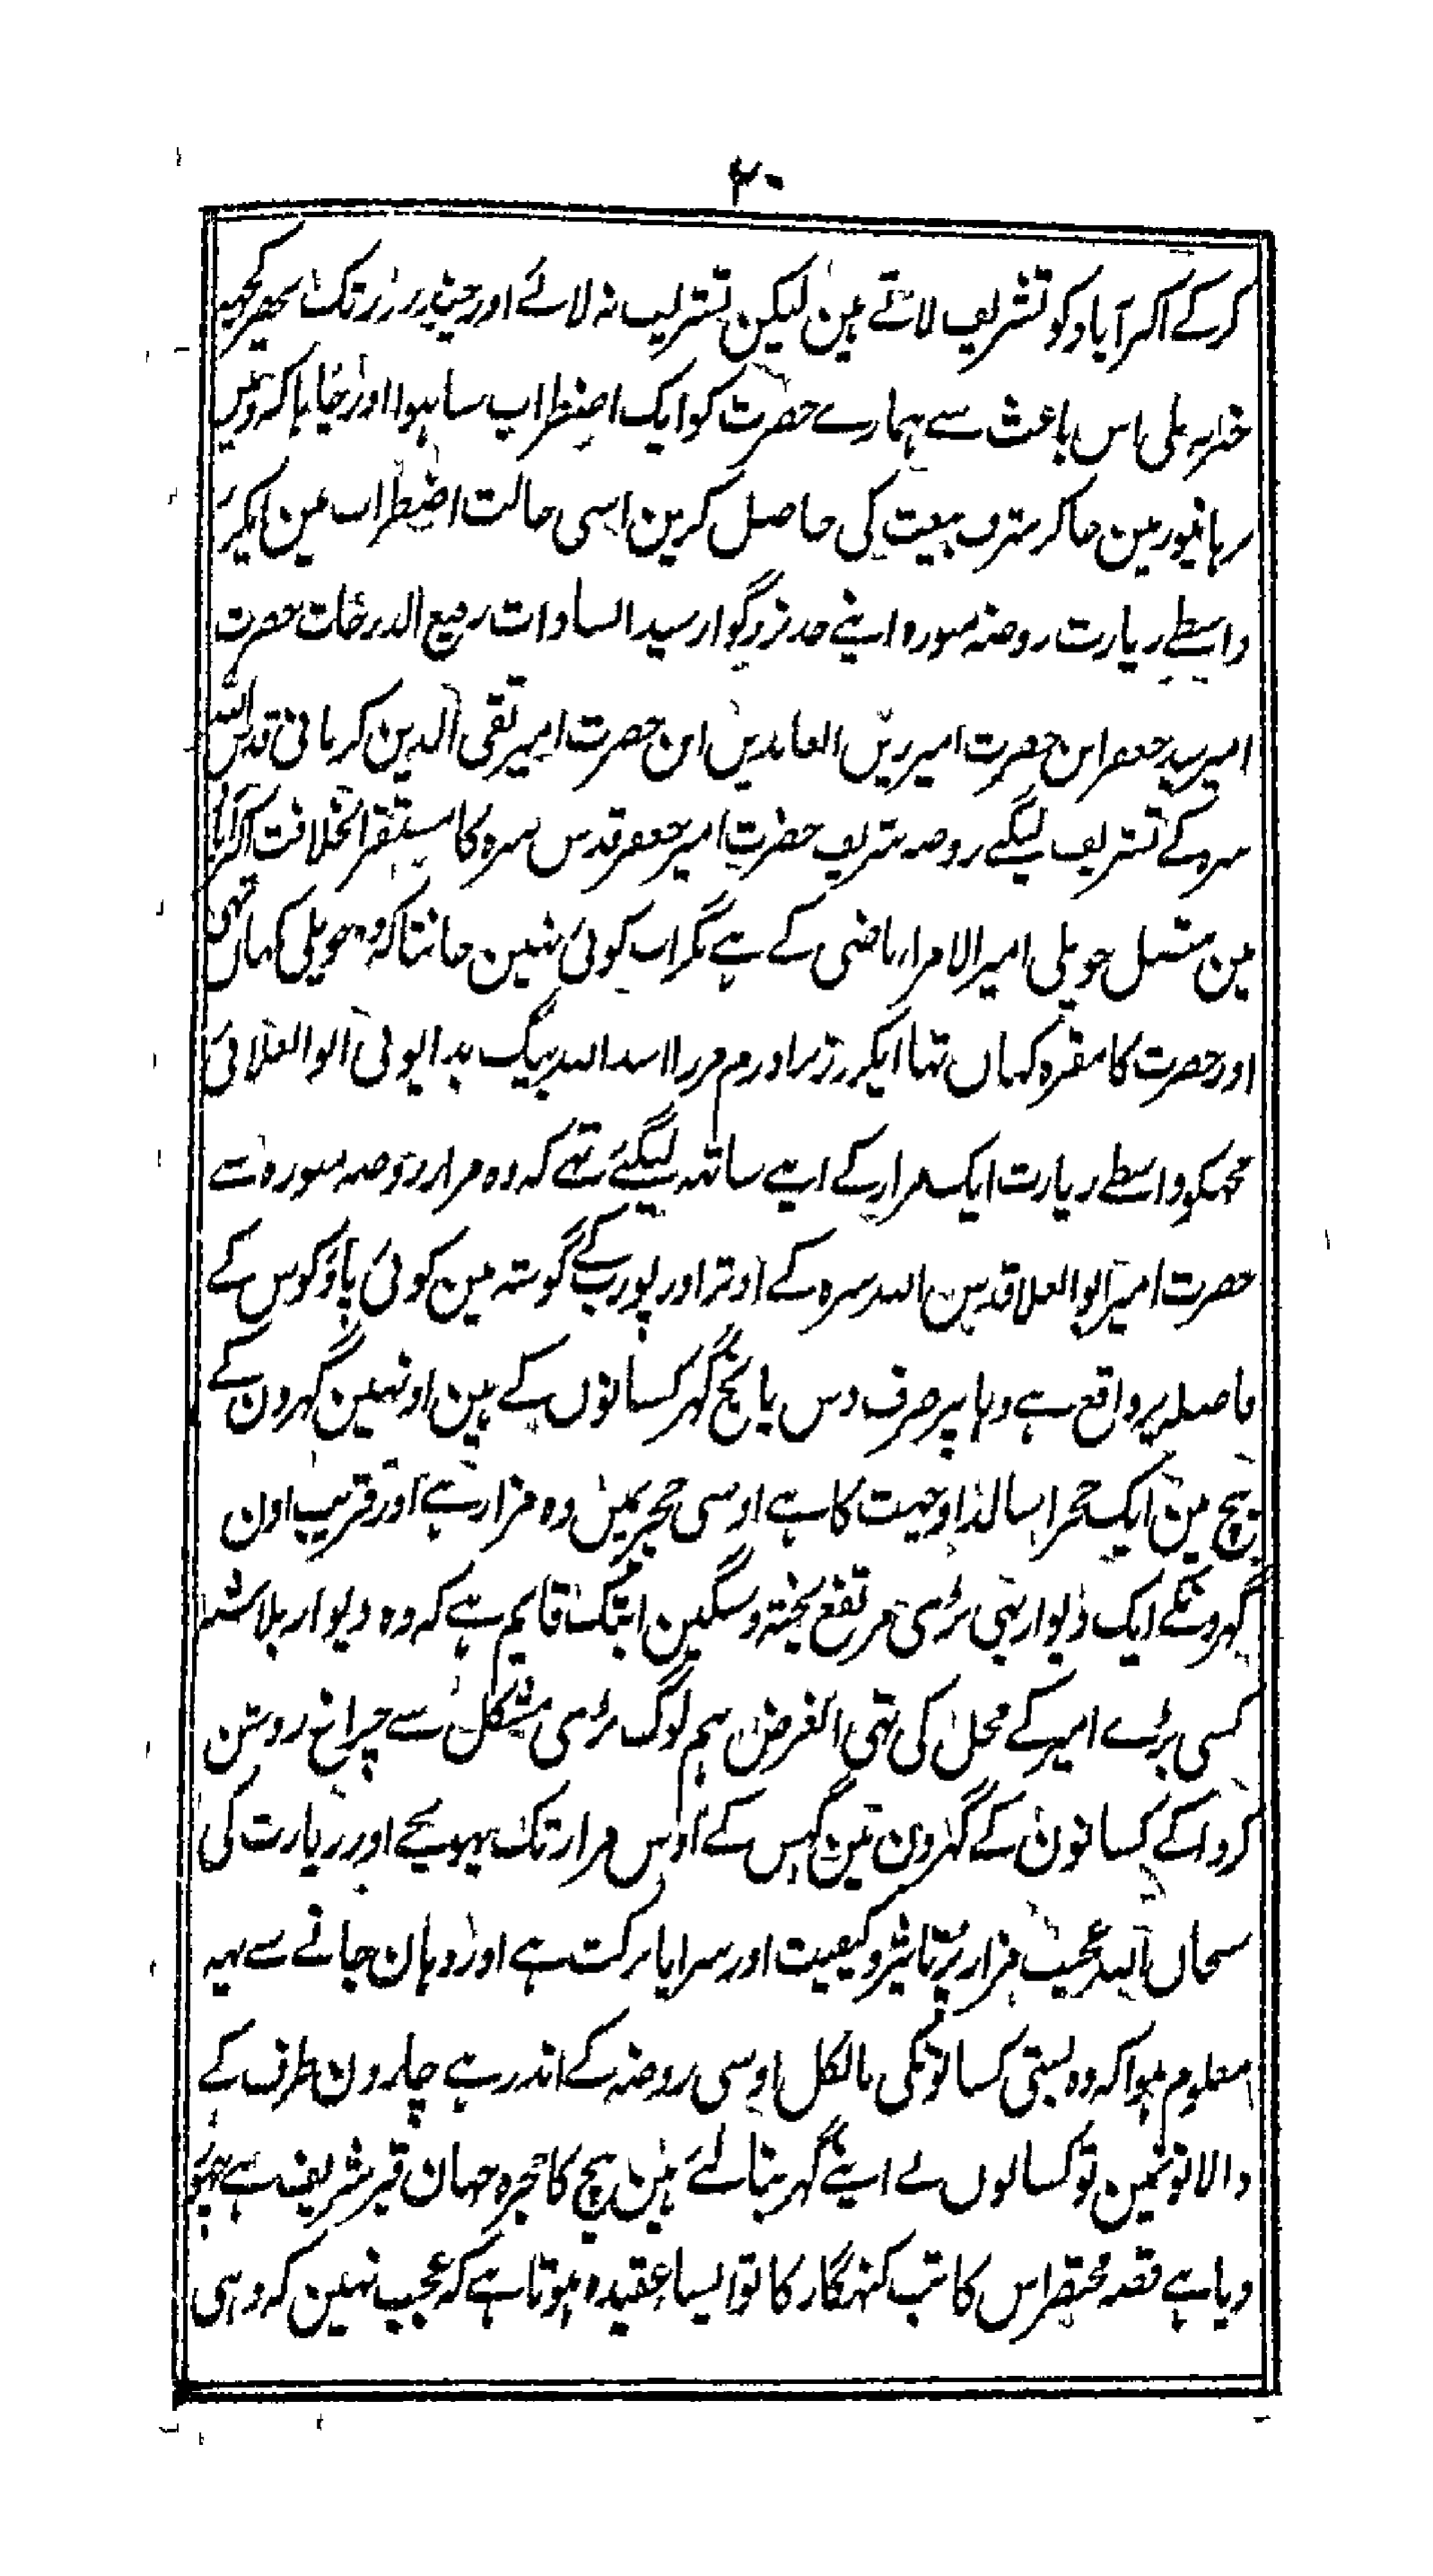 ۲۰
کرکے اکبرآباد کو تشریف لاتے ہین لیکن تشریف نہ لائے اور چند روز تک پھر کچھہ
خبر نہ ملی اس باعث سے ہمارے حضرت کو ایک اضطراب سا ہوا اور چاہا کہ وہین
برہانپور مین جاکر شرف بیعت کی حاصل کرین اسی حالت اضطراب مین ایکروز
واسطے زیارت روضہ منورہ اپنے جد بزرگوار سید السادات رفیع الدرجات حضرت
امیر سید جعفر ابن حضرت امیر زین العابدین ابن حضرت امیر تقی الدین کرمانی قدس اللہ
سرہ کے تشریف لیگئے روضہ شریف حضرت امیر جعفر قدس سرہ کا مستقر الخلافت اکبرآباد
مین متصل حویلی امیر الامرا ماضی کے ہے مگر اب کوئی نہین جانتا کہ وہ حویلی کہاں تھی
اور حضرت کا مقبرہ کہاں تہا ایکروز برادرم مرزا اسد اللہ بیگ بدایونی ابوالعلائی
مجھکو واسطے زیارت ایک مزار کے اپنے ساتھہ لیگئے تھے کہ وہ مزار روضہ منورہ سے
حضرت امیر ابوالعلا قدس اللہ سرہ کے اوتر اور پورب کے گوشہ مین کوئی پاؤ کوس کے
فاصلہ پر واقع ہے وہا پر صرف دس پانچ گہر کسانوں کے ہین اونہین گہرون کے
بیچ مین ایک حجرا سا لداو چہت کا ہے اوسی حجریمین وہ مزار ہے اور قریب اون
گہرونکے ایک دیوار بہی بڑی مرتفع پختہ و سنگین ابتک قایم ہے کہ وہ دیوار بلا شبہ
کسی بڑے امیر کے محل کی تہی الغرض ہم لوگ بڑی مشکل سے چراغ روشن
کرواکے کسانون کے گہرون مین گہس کے اوس مزار تک پہونچے اور زیارت کی
سبحان اللہ عجیب مزار پر تاثیر و کیفیت اور سراپا برکت ہے اور وہان جانے سے یہہ
معلوم ہوا کہ وہ بستی کسانونکی بالکل اوسی روضہ کے اندر ہے چارون طرف کے
دالانونمین تو کسانوں نے اپنے گہر بنالئے ہین بیچ کا حجرہ جہان قبر شریف ہے چہوڑ
دیا ہے قصہ مختصر اس کاتب گنہگار کا تو ایسا عقیدہ ہوتا ہے کہ عجب نہین کہ وہی